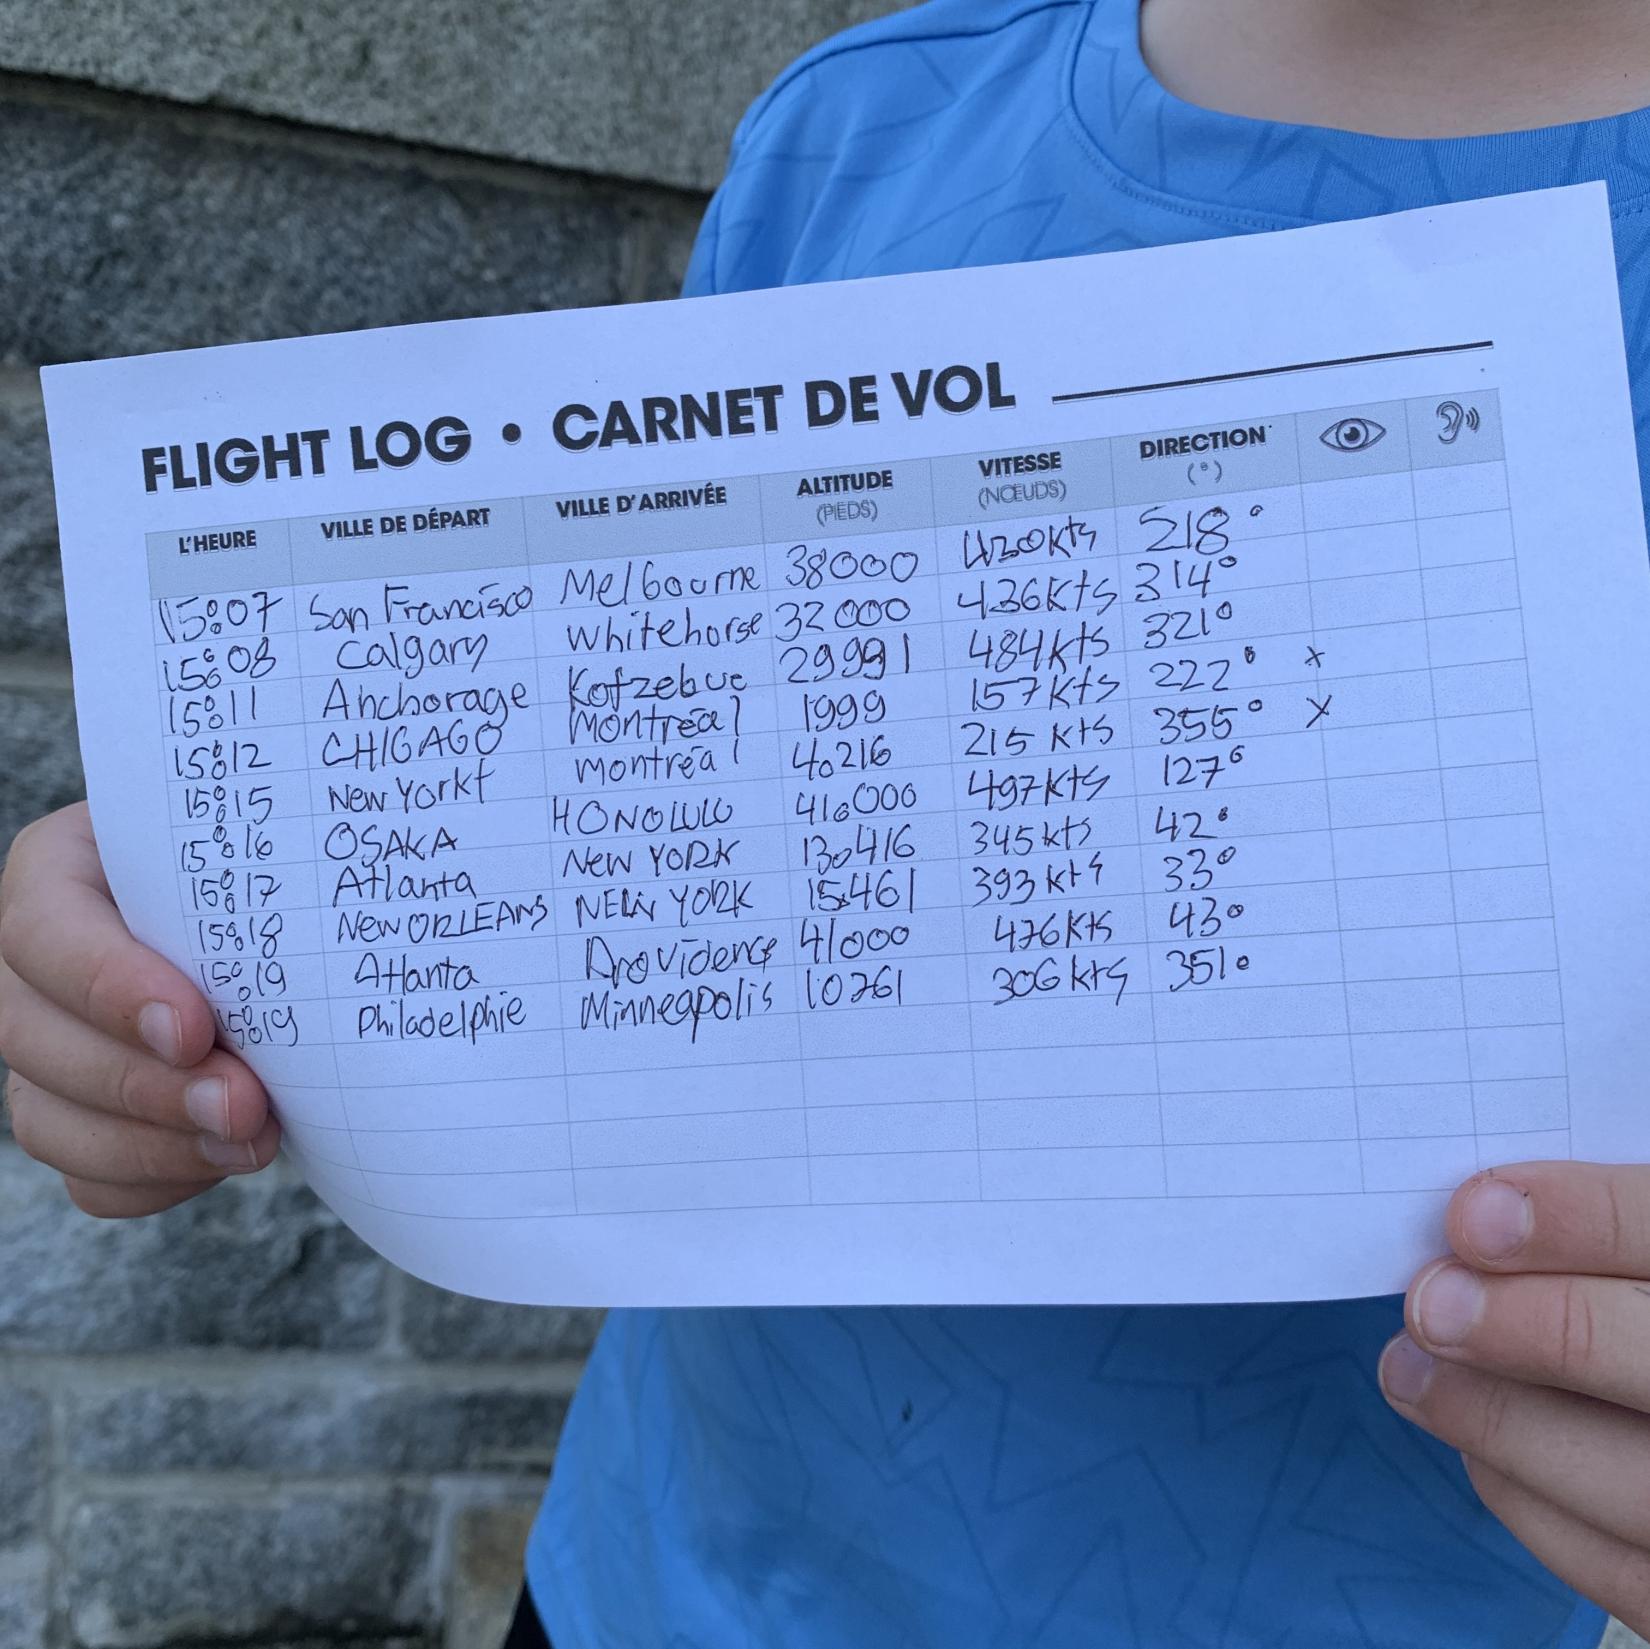 FLIGHT LOG • CARNET DE VOL
L'HEURE VILLE DE DÉPART VILLE D'ARRIVÉE ALTITUDE (PIEDS) VITESSE (NŒUDS) DIRECTION (°)
15:07 San Francisco Melbourne 38000 430kts 218°
15:08 Calgary Whitehorse 32000 436kts 314°
15:11 Anchorage Kotzebue 29991 484kts 321°
15:12 CHIGAGO Montréal 1999 157kts 222° x
15:15 New York Montréal 4,216 215 kts 355° x
15:16 OSAKA HONOLULU 41,000 497kts 127°
15:17 Atlanta NEW YORK 13,416 345kts 42°
15:18 NEW ORLEANS NEW YORK 15,461 393kts 33°
15:19 Atlanta Providence 41000 476kts 43°
15:19 Philadelphie Minneapolis 10761 306kts 351°